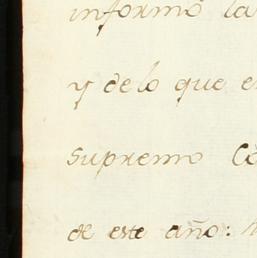 informó la
y de lo que e
supremo Co
de este año: